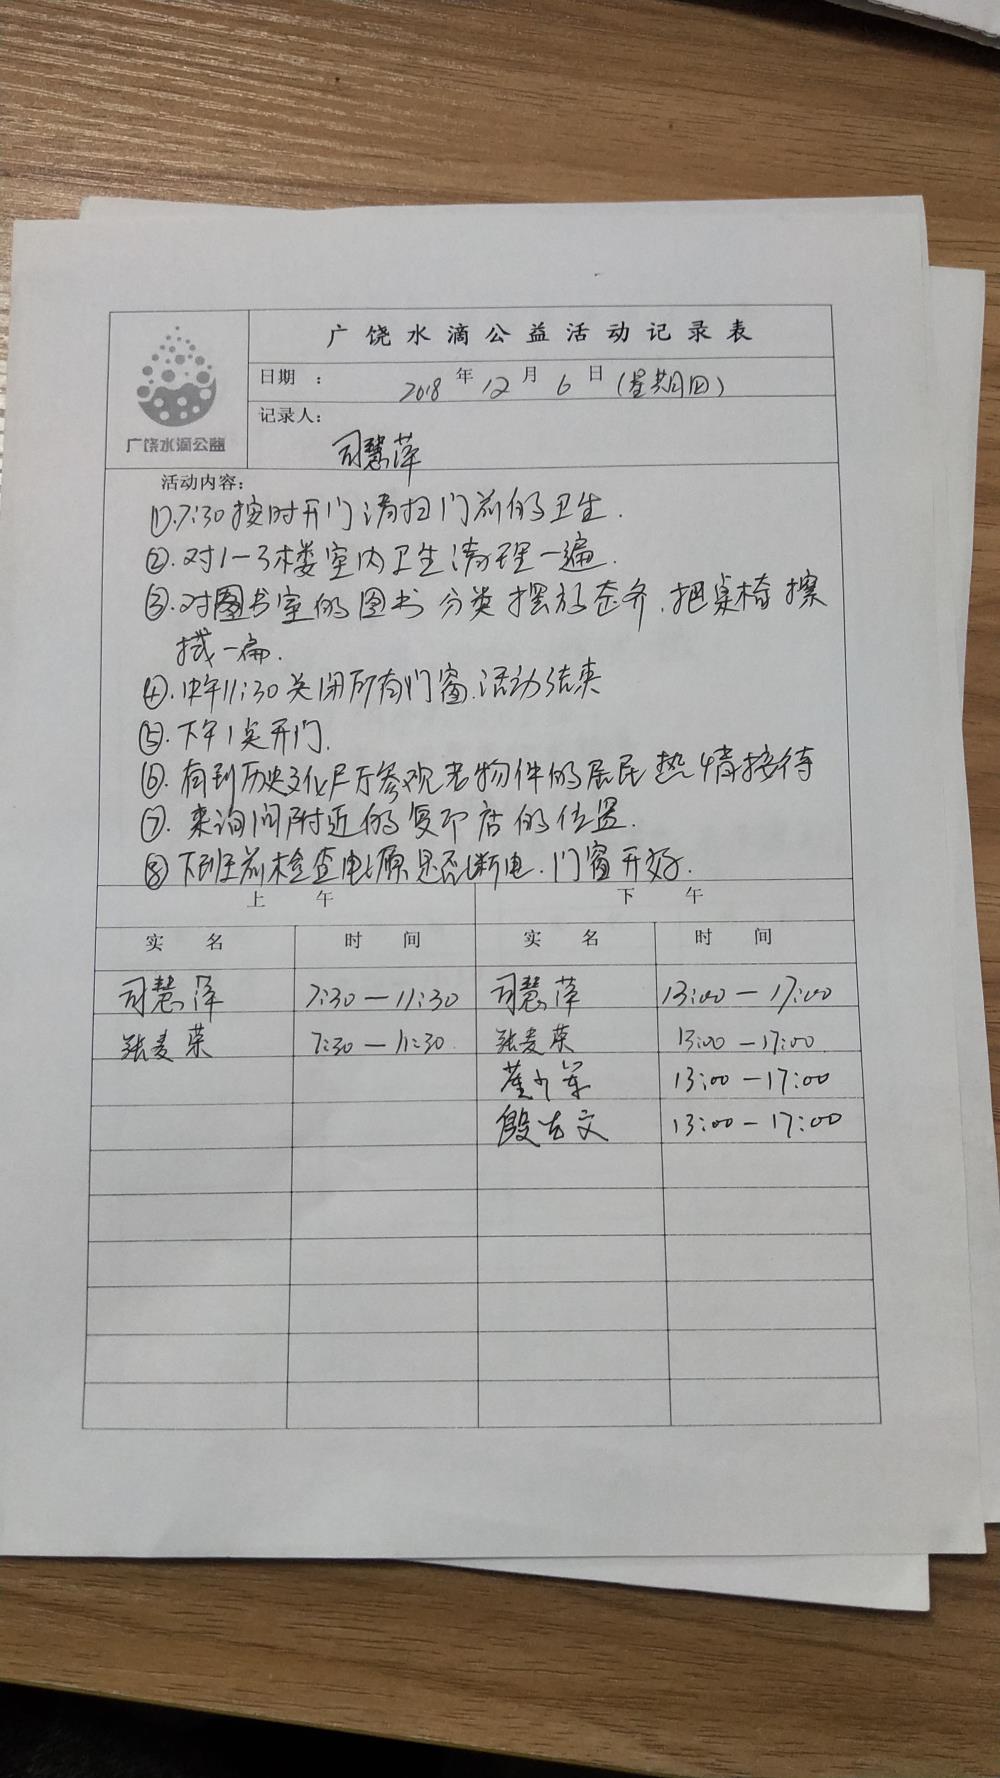 广饶水滴公益活动记录表
日期 : 2018 年 12 月 6 日 (星期四)
广饶水滴公益
记录人:
司慧萍
活动内容:
①.7:30按时开门清扫门前的卫生.
②.对1-3楼室内卫生清理一遍.
③.对图书室的图书分类摆放整齐.把桌椅擦
拭一扁.
④.中午11:30关闭所有门窗.活动结束
⑤.下午1点开门.
⑥.有到历史文化展厅参观老物件的居民热情接待
⑦.来询问附近的复印店的位置.
⑧下班前检查电源是否断电.门窗开好.
上 午 下 午
实 名 时 间 实 名 时 间
司慧萍 7:30-11:30 司慧萍 13:00-17:00
张麦荣 7:30-11:30. 张麦荣 13:00-17:00.
13:00-17:00
殷吉文 13:00-17:00